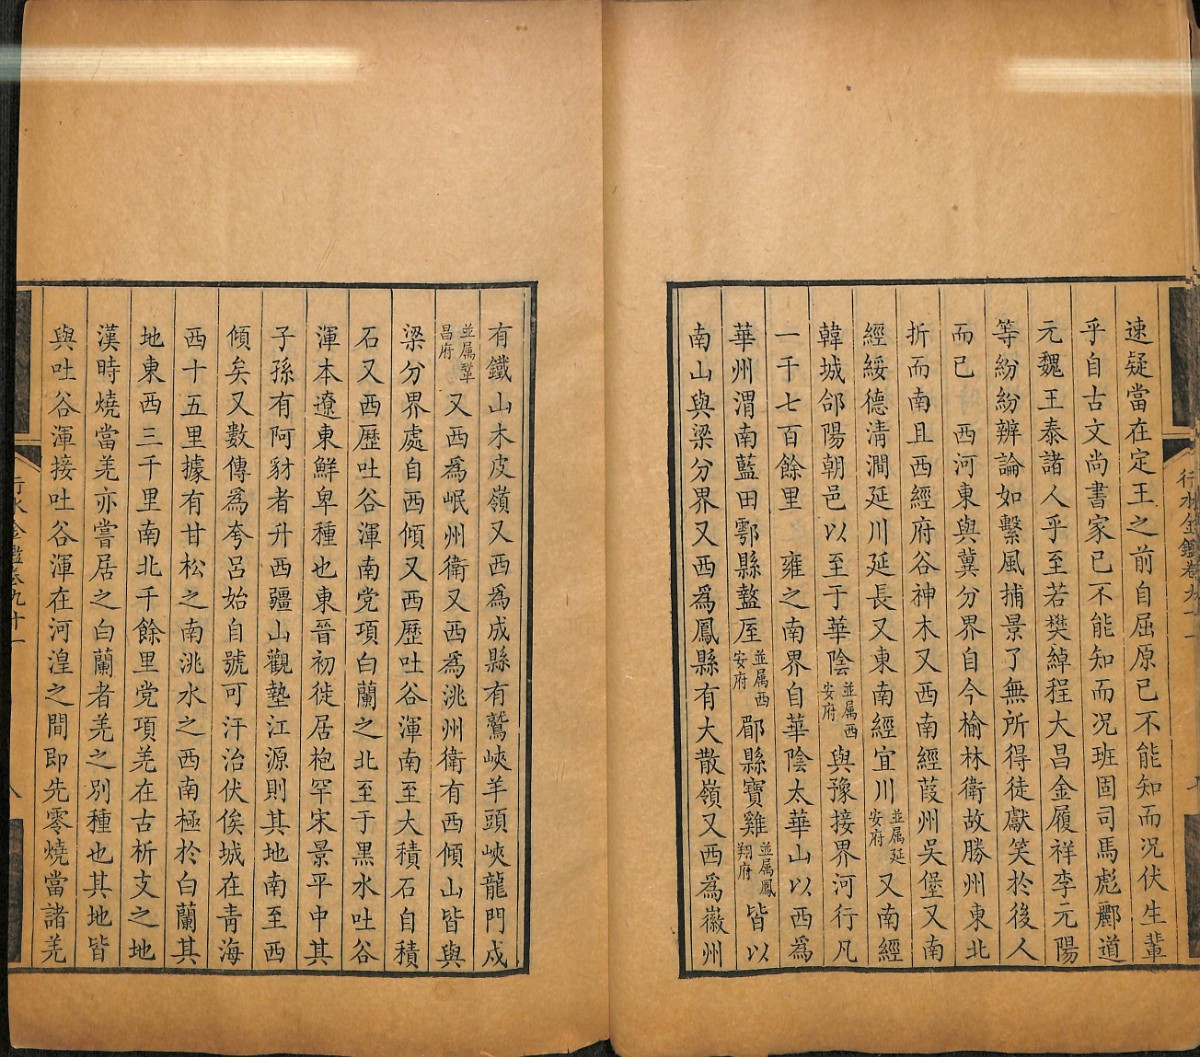 速疑當在定王之前自屈原已不能知而况伏生輩
乎自古文尚書家已不能知而况班固司馬彪酈道
元魏王泰諸人乎至若樊綽程大昌金履祥李元陽
等紛紛辨論如繫風捕景了無所得徒獻笑於後人
而已　西河東與冀分界自今榆林衛故勝州東北
折而南且西經府谷神木又西南經葭州吳堡又南
經綏德清澗延川延長又東南經宜川並属延安府又南經
韓城郃陽朝邑以至于華陰並属西安府與豫接界河行凡
一千七百餘里　雍之南界自華陰太華山以西為
華州渭南藍田鄠縣盩厔並属西安府郿縣寶雞並属鳳翔府皆以
南山與梁分界又西為鳳縣有大散嶺又西為徽州
有鐵山木皮嶺又西為成縣有鷲峽羊頭峽龍門戍
並属鞏昌府又西為岷州衛又西為洮州衛有西傾山皆與
梁分界處自西傾又西歷吐谷渾南至大積石自積
石又西歷吐谷渾南党項白蘭之北至于黑水吐谷
渾本遼東鮮卑種也東晉初徙居枹罕宋景平中其
子孫有阿豺者升西疆山觀墊江源則其地南至西
傾矣又數傳為夸呂始自號可汗治伏俟城在青海
西十五里據有甘松之南洮水之西南極於白蘭其
地東西三千里南北千餘里党項羌在古析支之地
漢時燒當羌亦嘗居之白蘭者羌之別種也其地皆
與吐谷渾接吐谷渾在河湟之間即先零燒當諸羌
行水金鑑卷九十一
八